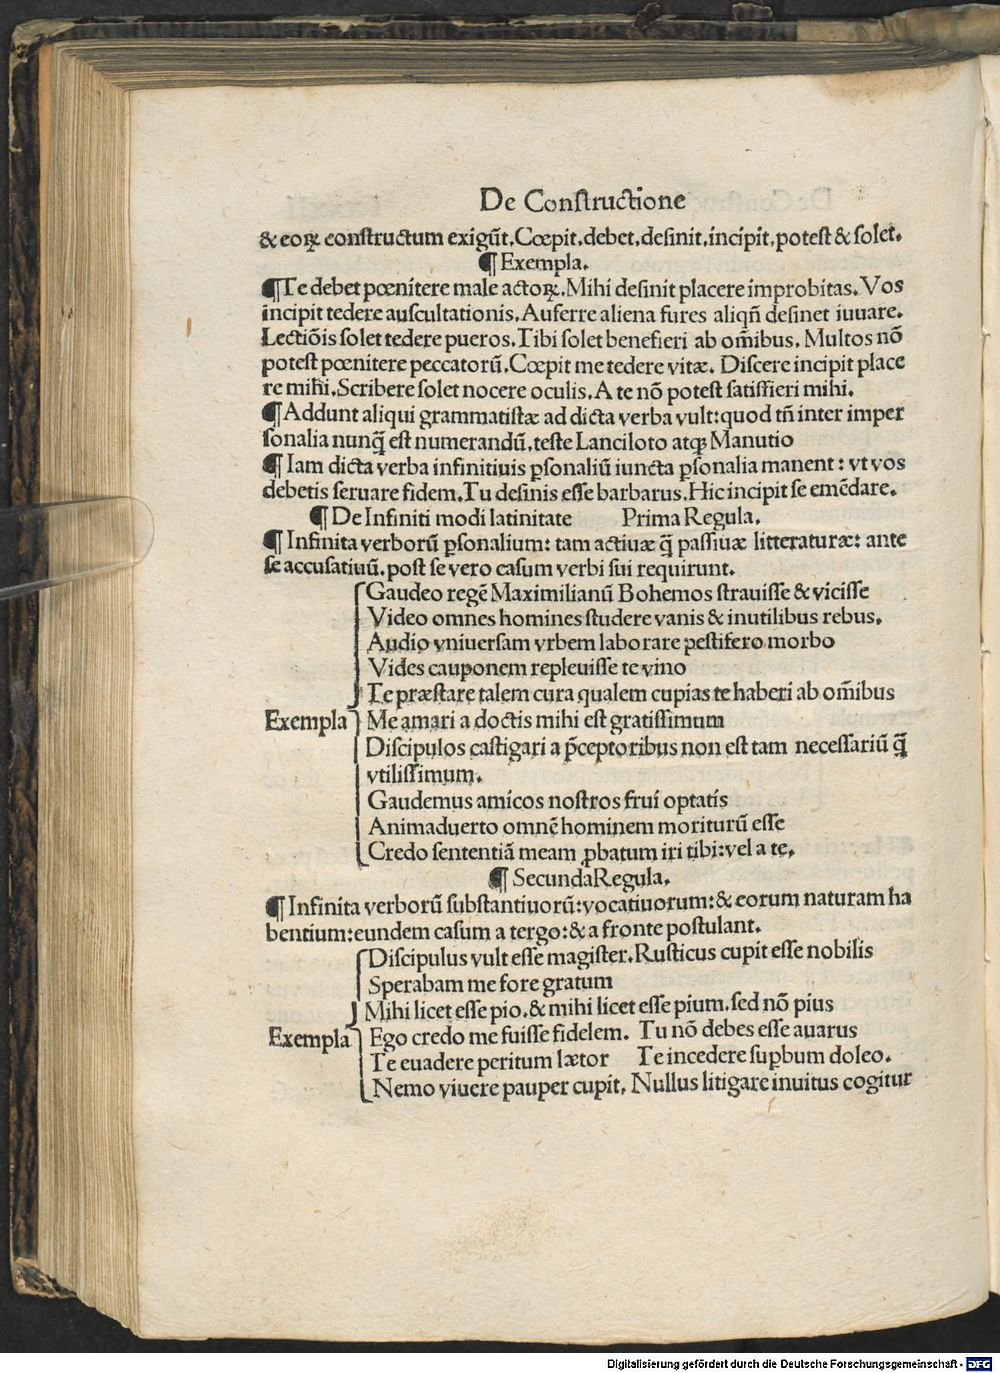 De Conſtructione
& eoꝝ conſtructum exigūt. Cœpit. debet. deſinit. incipit. poteſt & ſolet.
¶ Exempla.
¶ Te debet pœnitere male actoꝝ. Mihi deſinit placere improbitas. Vos
incipit tedere auſcultationis. Auferre aliena fures aliqñ deſinet iuuare.
Lectiōis ſolet tedere pueros. Tibi ſolet beneſieri ab om̄ibus. Multos nō
poteſt pœnitere peccatorū. Cœpit me tedere vitæ. Diſcere incipit place
re mihi. Scribere ſolet nocere oculis. A te nō poteſt ſatiſfieri mihi.
¶ Addunt aliqui grammatiſtæ ad dicta verba vult: quod tñ inter imper
ſonalia nunq̄ eſt numerandū. teſte Lanciloto atqꝫ Manutio
¶ Iam dicta verba infinitiuis ꝑſonaliū iuncta ꝑſonalia manent: vt vos
debetis ſeruare fidem. Tu deſinis eſſe barbarus. Hic incipit ſe emēdare.
¶ De Infiniti modi latinitate Prima Regula.
¶ Infinita verborū ꝑſonalium: tam actiuæ q̄ paſſiuæ litteraturæ: ante
ſe accuſatiuū. poſt ſe vero caſum verbi ſui requirunt.
Gaudeo regē Maximilianū Bohemos ſtrauiſſe & viciſſe
Video omnes homines ſtudere vanis & inutilibus rebus.
Audio vniuerſam vrbem laborare peſtifero morbo
Vides cauponem repleuiſſe te vino
Te præſtare talem cura qualem cupias te haberi ab om̄ibus
Exempla Me amari a doctis mihi eſt gratiſſimum
Diſcipulos caſtigari a p̄ceptoribus non eſt tam neceſſariū q̄
vtiliſſimum.
Gaudemus amicos noſtros frui optatis
Animaduerto omnē hominem moriturū eſſe
Credo ſententiā meam ꝓbatum iri tibi: vel a te.
¶ Secunda Regula.
¶ Infinita verborū ſubſtantiuorū: vocatiuorum: & eorum naturam ha
bentium: eundem caſum a tergo: & a fronte poſtulant.
Diſcipulus vult eſſe magiſter. Ruſticus cupit eſſe nobilis
Sperabam me fore gratum
Mihi licet eſſe pio. & mihi licet eſſe pium. ſed nō pius
Exempla Ego credo me fuiſſe fidelem. Tu nō debes eſſe auarus
Te euadere peritum lætor Te incedere ſuꝑbum doleo.
Nemo viuere pauper cupit. Nullus litigare inuitus cogitur
Digitalisierung gefördert durch die Deutsche Forschungsgemeinschaft - DFG